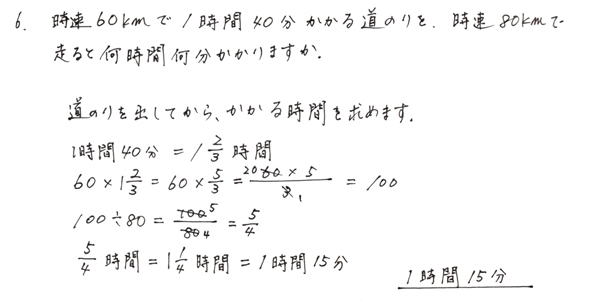 6. 時速60kmで1時間40分かかる道のりを、時速80kmで
走ると何時間何分かかりますか.
道のりを出してから、かかる時間を求めます.
1時間40分 = 1 2/3 時間
60 × 1 2/3 = 60 × 5/3 = 20 60 × 5 / 3 1 = 100
100 ÷ 80 = 100 5 / 80 4 = 5/4
5/4 時間 = 1 1/4 時間 = 1時間15分
1時間15分